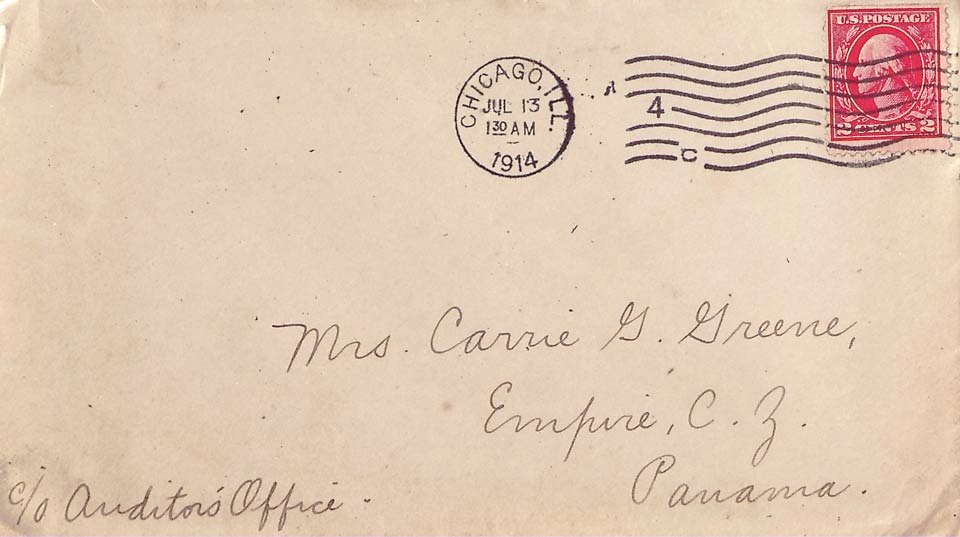 U.S. POSTAGE
2 CENTS 2
CHICAGO, ILL.
JUL 13
1 30 AM
1914
A
4
C
Mrs. Carrie G. Greene,
Empire, C. Z.
Panama.
c/o Auditor's Office.